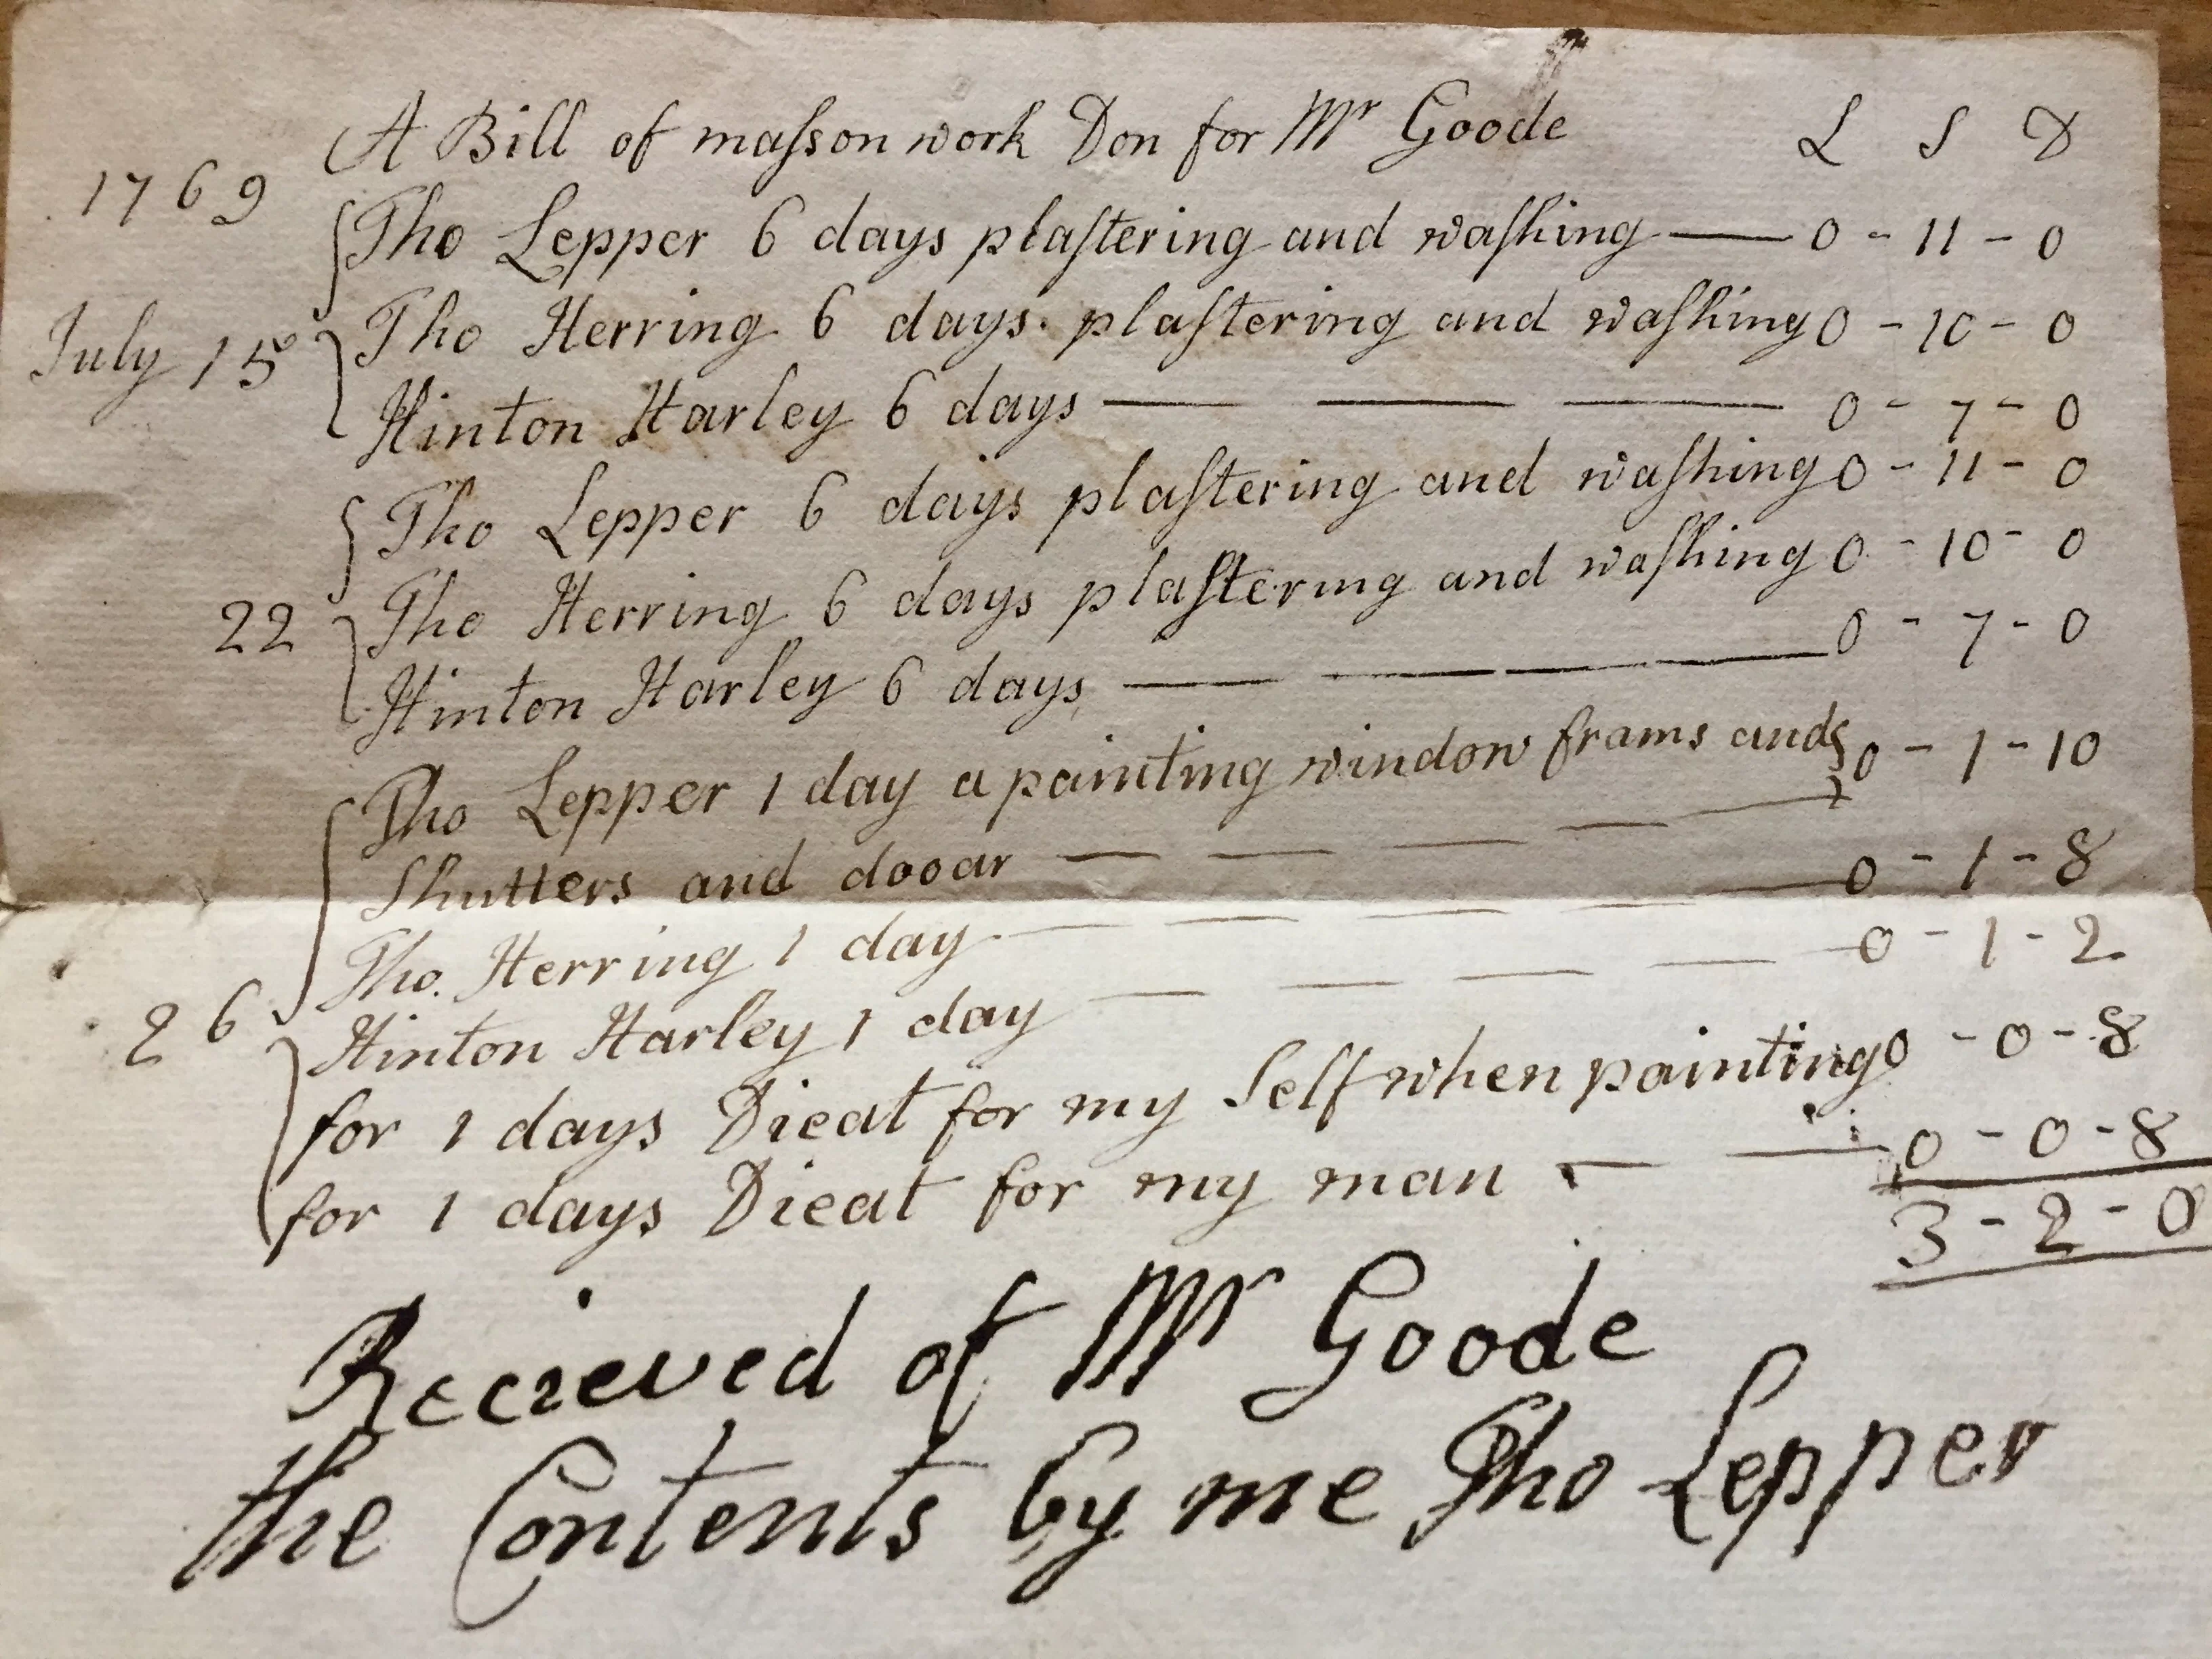 A Bill of maſson work Don for Mr Goode L S D
1769
Tho Lepper 6 days plaſtering and waſhing — 0 - 11 - 0
July 15 Tho Herring 6 days plaſtering and waſhing 0 - 10 - 0
Hinton Harley 6 days — — — 0 - 7 - 0
Tho Lepper 6 days plaſtering and waſhing 0 - 11 - 0
22 Tho Herring 6 days plaſtering and waſhing 0 - 10 - 0
Hinton Harley 6 days — — — 0 - 7 - 0
Tho Lepper 1 day a painting window frams and 0 - 1 - 10
Shutters and dooar — — — — —
Tho. Herring 1 day — — — — — 0 - 1 - 8
26 Hinton Harley 1 day — — — — 0 - 1 - 2
for 1 days Dieat for my Self when painting 0 - 0 - 8
for 1 days Dieat for my man — — 0 - 0 - 8
3 - 2 - 0
Recieved of Mr Goode
the Contents by me Tho Lepper